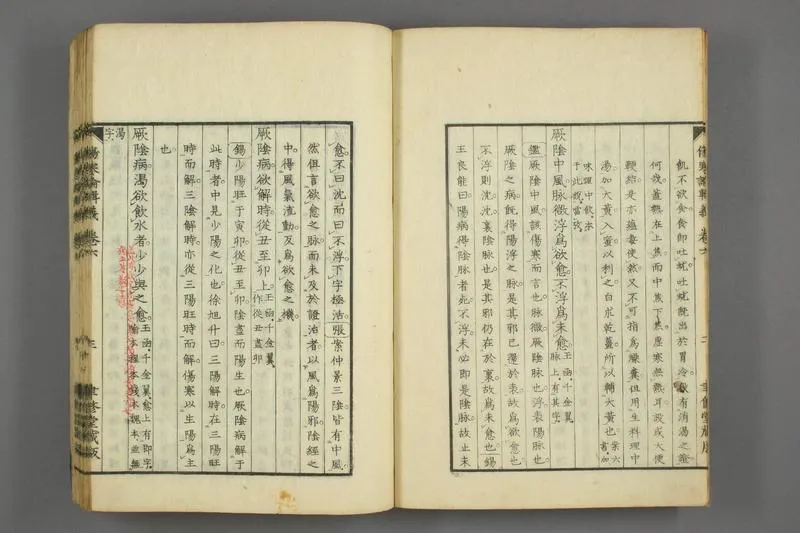 飢不欲食食即吐蚘吐蚘既出於胃冷儼有消渴之證
何哉蓋熱在上焦而中焦下焦虛寒無熱耳設或大便
鞕結是亦蘊毒使然又不可指爲燥糞但用生料理中
湯加大黃入蜜以利之白朮乾薑所以輔大黃也
厥陰中風脈微浮爲欲愈不浮爲未愈玉函千金翼脈上有其字
鑑厥陰中風該傷寒而言也脈微厥陰脈也浮表陽脈也
厥陰之病既得陽浮之脈是其邪已還於表故爲欲愈也
不浮則沈沈裏陰脈也是其邪仍在於裏故爲未愈也錫
王良能曰陽病得陰脈者死不浮未必即是陰脈故止未
愈不曰沈而曰不浮下字極活張案仲景三陰皆有中風
然俱言欲愈之脈而未及於證治者以風爲陽邪陰經之
中得風氣流動反爲欲愈之機
厥陰病欲解時從丑至卯上玉函千金翼作從丑盡卯
錫少陽旺于寅卯從丑至卯陰盡而陽生也厥陰病解于
此時者中見少陽之化也徐旭升曰三陽解時在三陽旺
時而解三陰解時亦從三陽旺時而解傷寒以生陽爲主
也
厥陰病渴欲飲水者少少與之愈
傷寒論輯義 卷六
聿修堂藏版